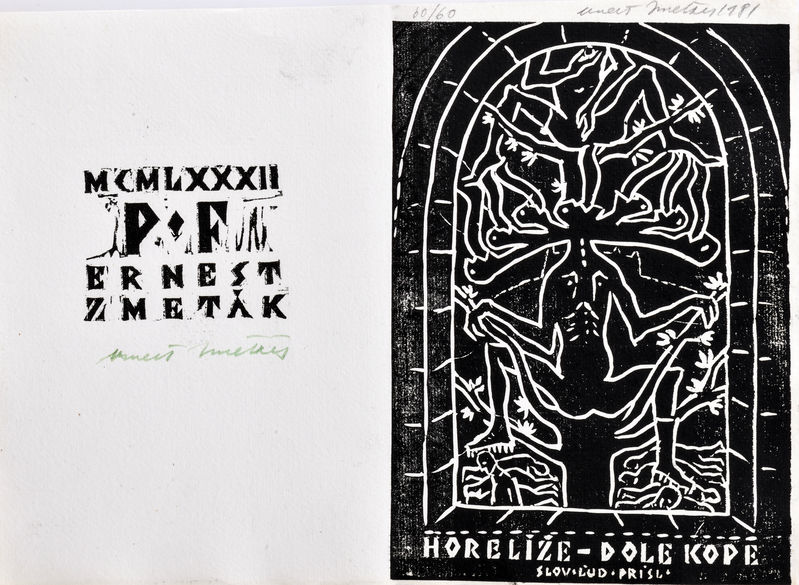 MCMLXXXII
P·F
ERNEST
ZMETÁK
Ernest Zmeták
60/60
Ernest Zmeták 1981
HORE LÍŽE – DOLE KOPE
SLOV·ĽUD·PRÍSL·